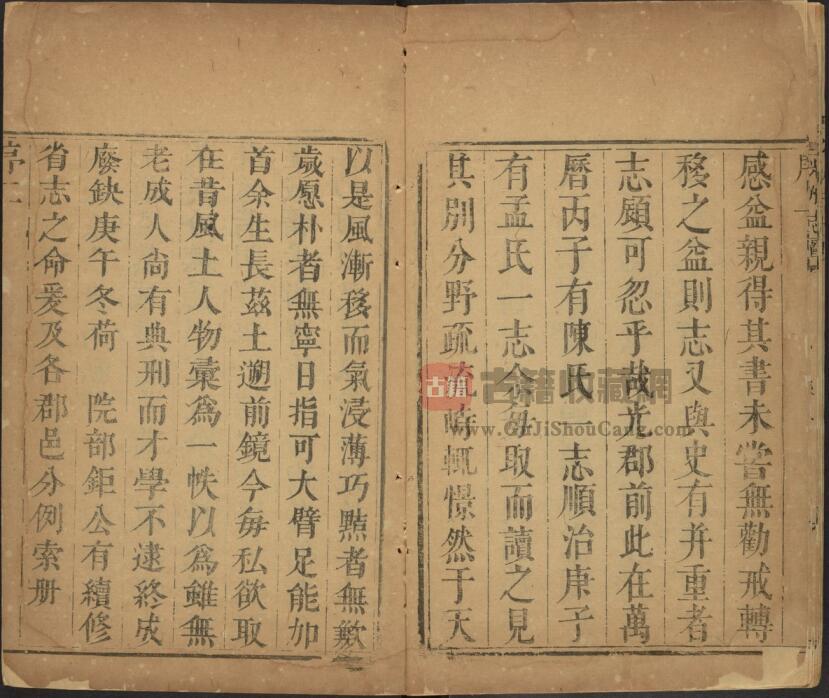 感益親得其書未嘗無勸戒轉
移之益則志又與史有并重者
志顧可忽乎哉光郡前此在萬
曆丙子有陳氏 志順治庚子
有孟氏一志余每取而讀之見
其別分野疏 峙輒憬然于天
以是風漸移而氣浸薄巧黠者無歉
歲愿朴者無寧日指可大臂足能加
首余生長茲土遡前鏡今每私欲取
在昔風土人物彙為一帙以為雖無
老成人尚有典刑而才學不逮終成
廢缺庚午冬荷 院部鉅公有續修
省志之命爰及各郡邑分例索册
序二
古籍
古籍收藏網
www.GuJiShouCang.com